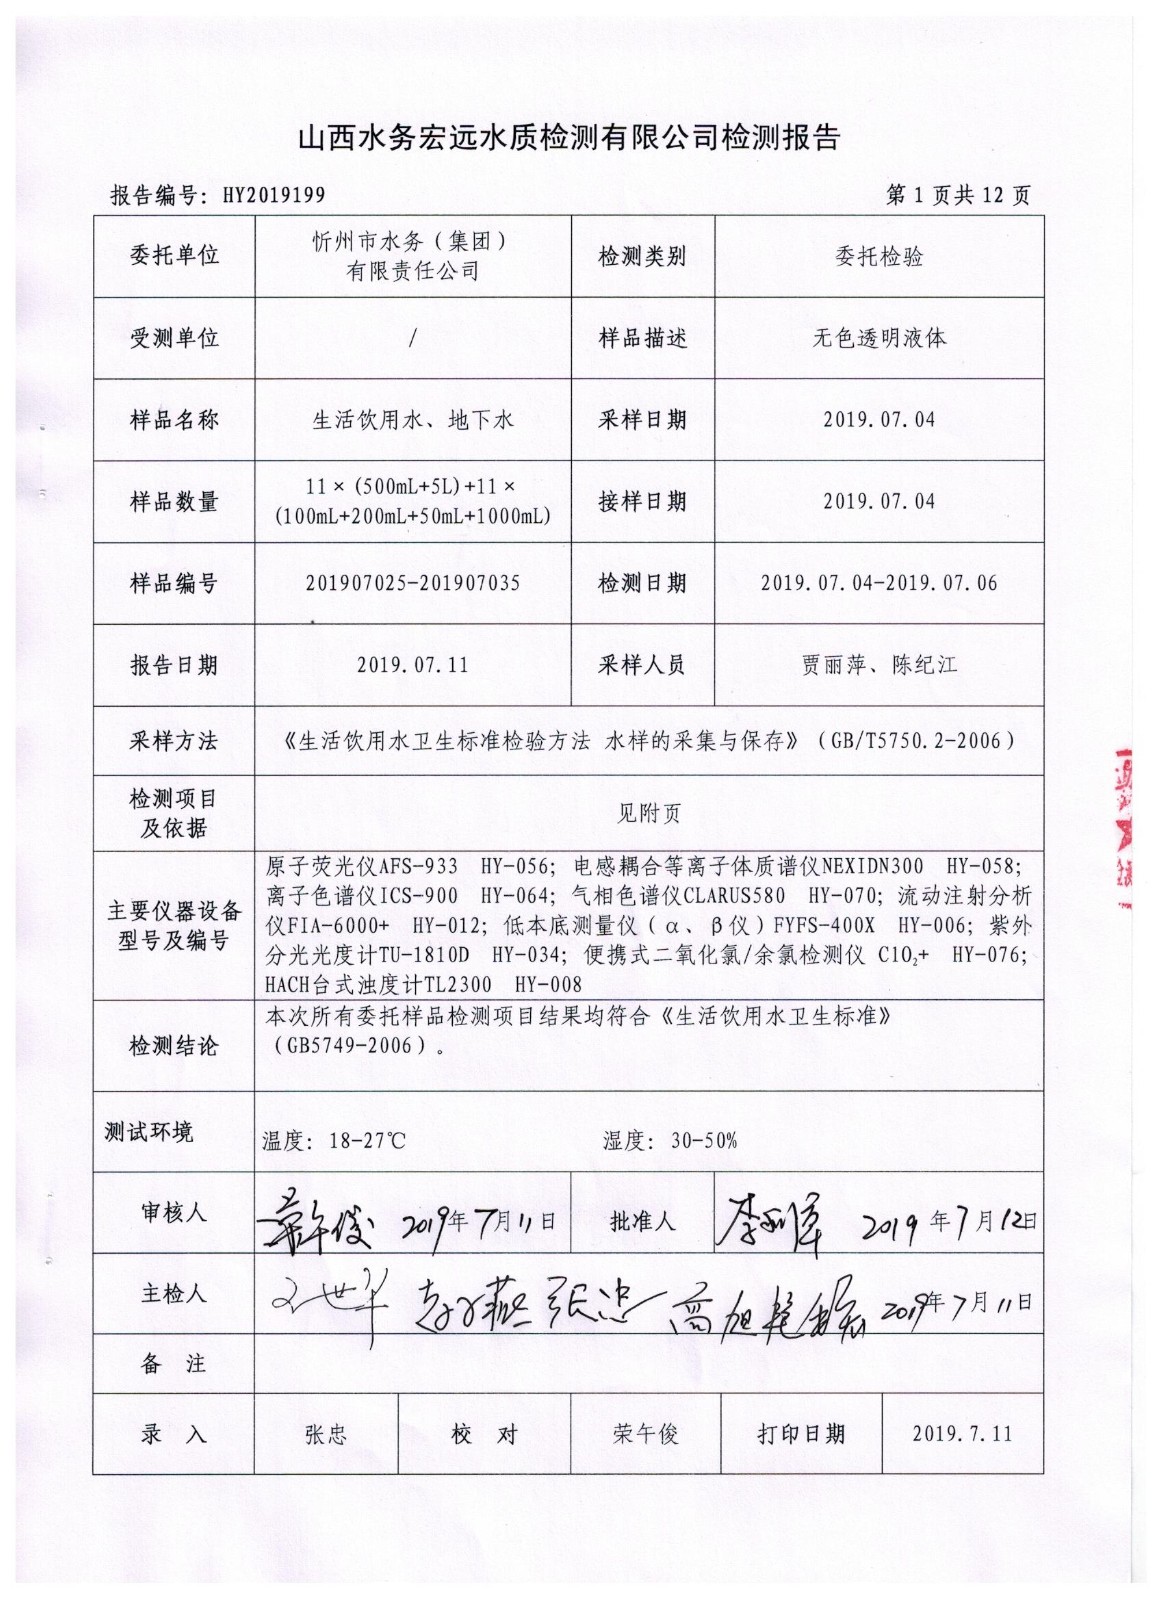 山西水务宏远水质检测有限公司检测报告
报告编号：HY2019199
第 1 页共 12 页
委托单位
忻州市水务（集团）
有限责任公司
检测类别
委托检验
受测单位
/
样品描述
无色透明液体
样品名称
生活饮用水、地下水
采样日期
2019.07.04
样品数量
11×(500mL+5L)+11×
(100mL+200mL+50mL+1000mL)
接样日期
2019.07.04
样品编号
201907025-201907035
检测日期
2019.07.04-2019.07.06
报告日期
2019.07.11
采样人员
贾丽萍、陈纪江
采样方法
《生活饮用水卫生标准检验方法 水样的采集与保存》（GB/T5750.2-2006）
检测项目
及依据
见附页
主要仪器设备
型号及编号
原子荧光仪AFS-933 HY-056；电感耦合等离子体质谱仪NEXIDN300 HY-058；
离子色谱仪ICS-900 HY-064；气相色谱仪CLARUS580 HY-070；流动注射分析
仪FIA-6000+ HY-012；低本底测量仪（α、β仪）FYFS-400X HY-006；紫外
分光光度计TU-1810D HY-034；便携式二氧化氯/余氯检测仪 ClO₂+ HY-076；
HACH台式浊度计TL2300 HY-008
检测结论
本次所有委托样品检测项目结果均符合《生活饮用水卫生标准》
（GB5749-2006）。
测试环境
温度：18-27℃ 湿度：30-50%
审核人
荣午俊 2019年7月11日
批准人
2019年7月12日
主检人
张忠 2019年7月11日
备 注
录 入
张忠
校 对
荣午俊
打印日期
2019.7.11